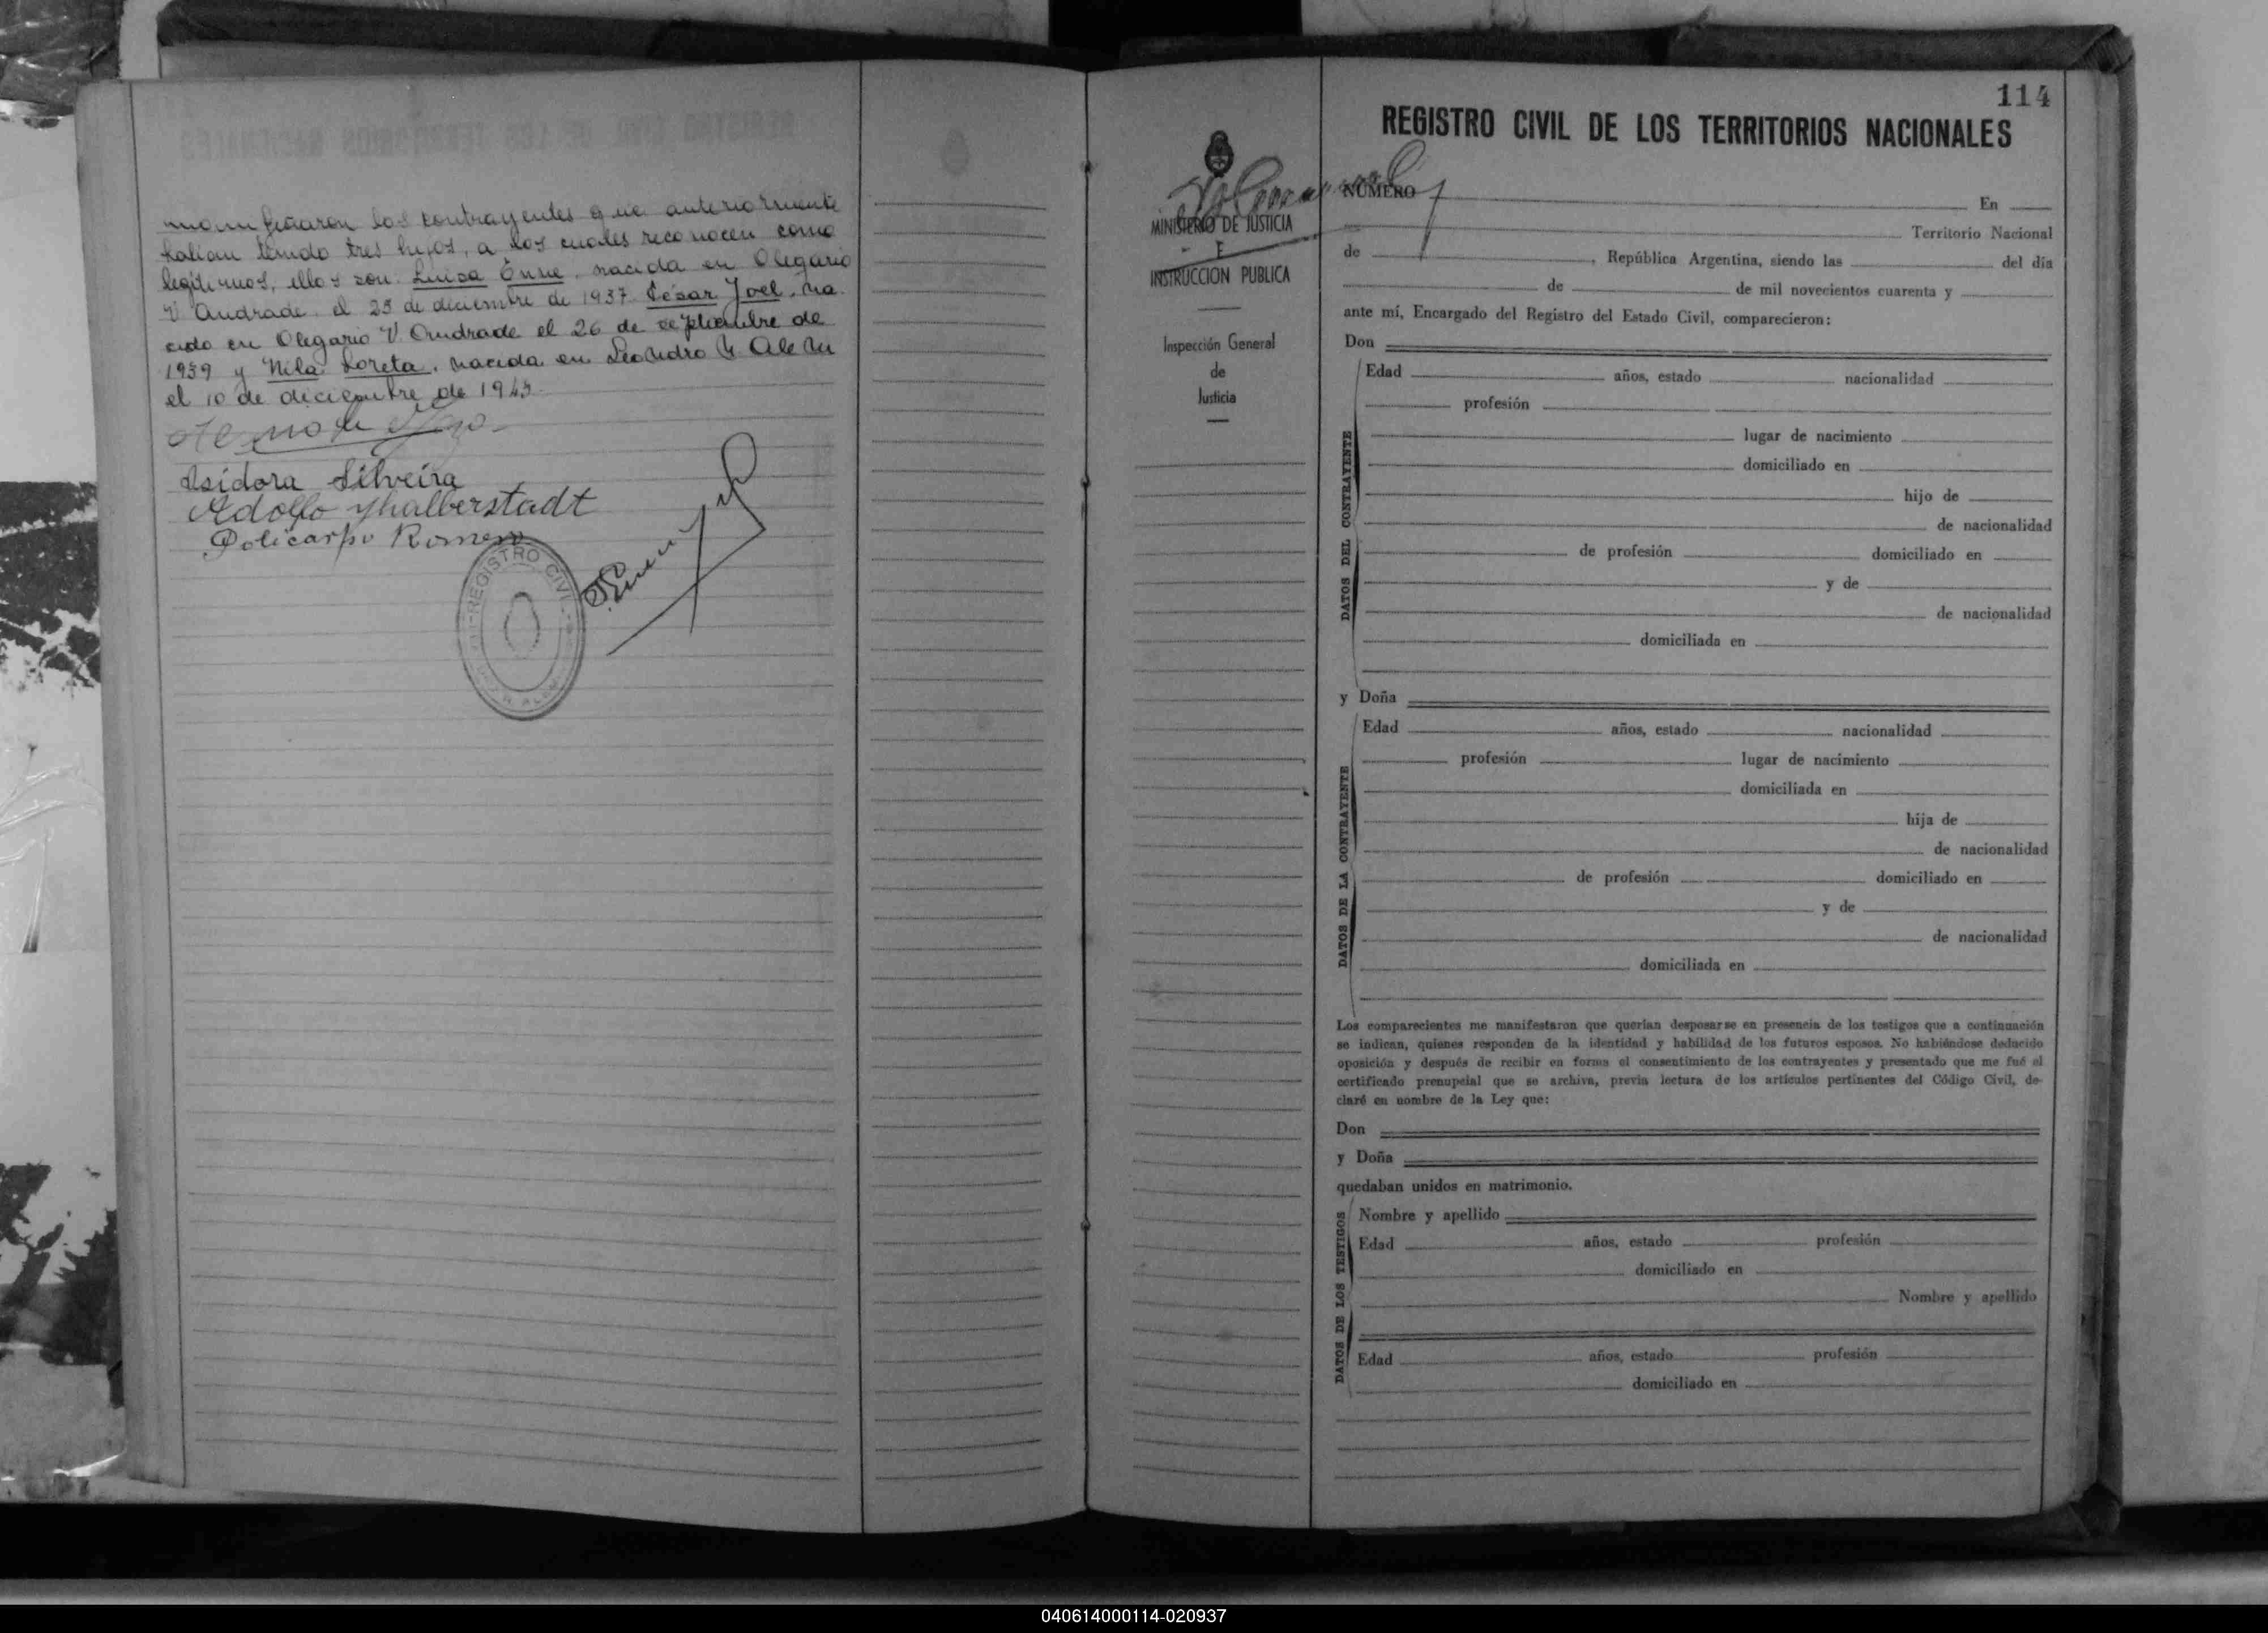 manifestaron los contrayentes que anteriormente
habian tenido tres hijos, a los cuales reconocen como
legitimos, ellos son: Luisa Enne, nacida en Olegario
V. Andrade, el 25 de diciembre de 1937. César Joel, na
cido en Olegario V. Andrade el 26 de septiembre de
1939 y Nila Loreta, nacida en Leandro N. Alem
el 10 de diciembre de 1943.
Isidora Silveira
Adolfo Thalberstadt
Policarpo Romero
REGISTRO CIVIL
114
REGISTRO CIVIL DE LOS TERRITORIOS NACIONALES
MINISTERIO DE JUSTICIA
E
INSTRUCCION PUBLICA
Inspección General
de
Justicia
NÚMERO En
Territorio Nacional
de , República Argentina, siendo las del día
de de mil novecientos cuarenta y
ante mí, Encargado del Registro del Estado Civil, comparecieron:
Don
DATOS DEL CONTRAYENTE
Edad años, estado nacionalidad
profesión
lugar de nacimiento
domiciliado en
hijo de
de nacionalidad
de profesión domiciliado en
y de
de nacionalidad
domiciliada en
y Doña
DATOS DE LA CONTRAYENTE
Edad años, estado nacionalidad
profesión lugar de nacimiento
domiciliada en
hija de
de nacionalidad
de profesión domiciliado en
y de
de nacionalidad
domiciliada en
Los comparecientes me manifestaron que querían desposarse en presencia de los testigos que a continuación
se indican, quienes responden de la identidad y habilidad de los futuros esposos. No habiéndose deducido
oposición y después de recibir en forma el consentimiento de los contrayentes y presentado que me fué el
certificado prenupcial que se archiva, previa lectura de los artículos pertinentes del Código Civil, de-
claré en nombre de la Ley que:
Don
y Doña
quedaban unidos en matrimonio.
DATOS DE LOS TESTIGOS
Nombre y apellido
Edad años, estado profesión
domiciliado en
Nombre y apellido
Edad años, estado profesión
domiciliado en
040614000114-020937